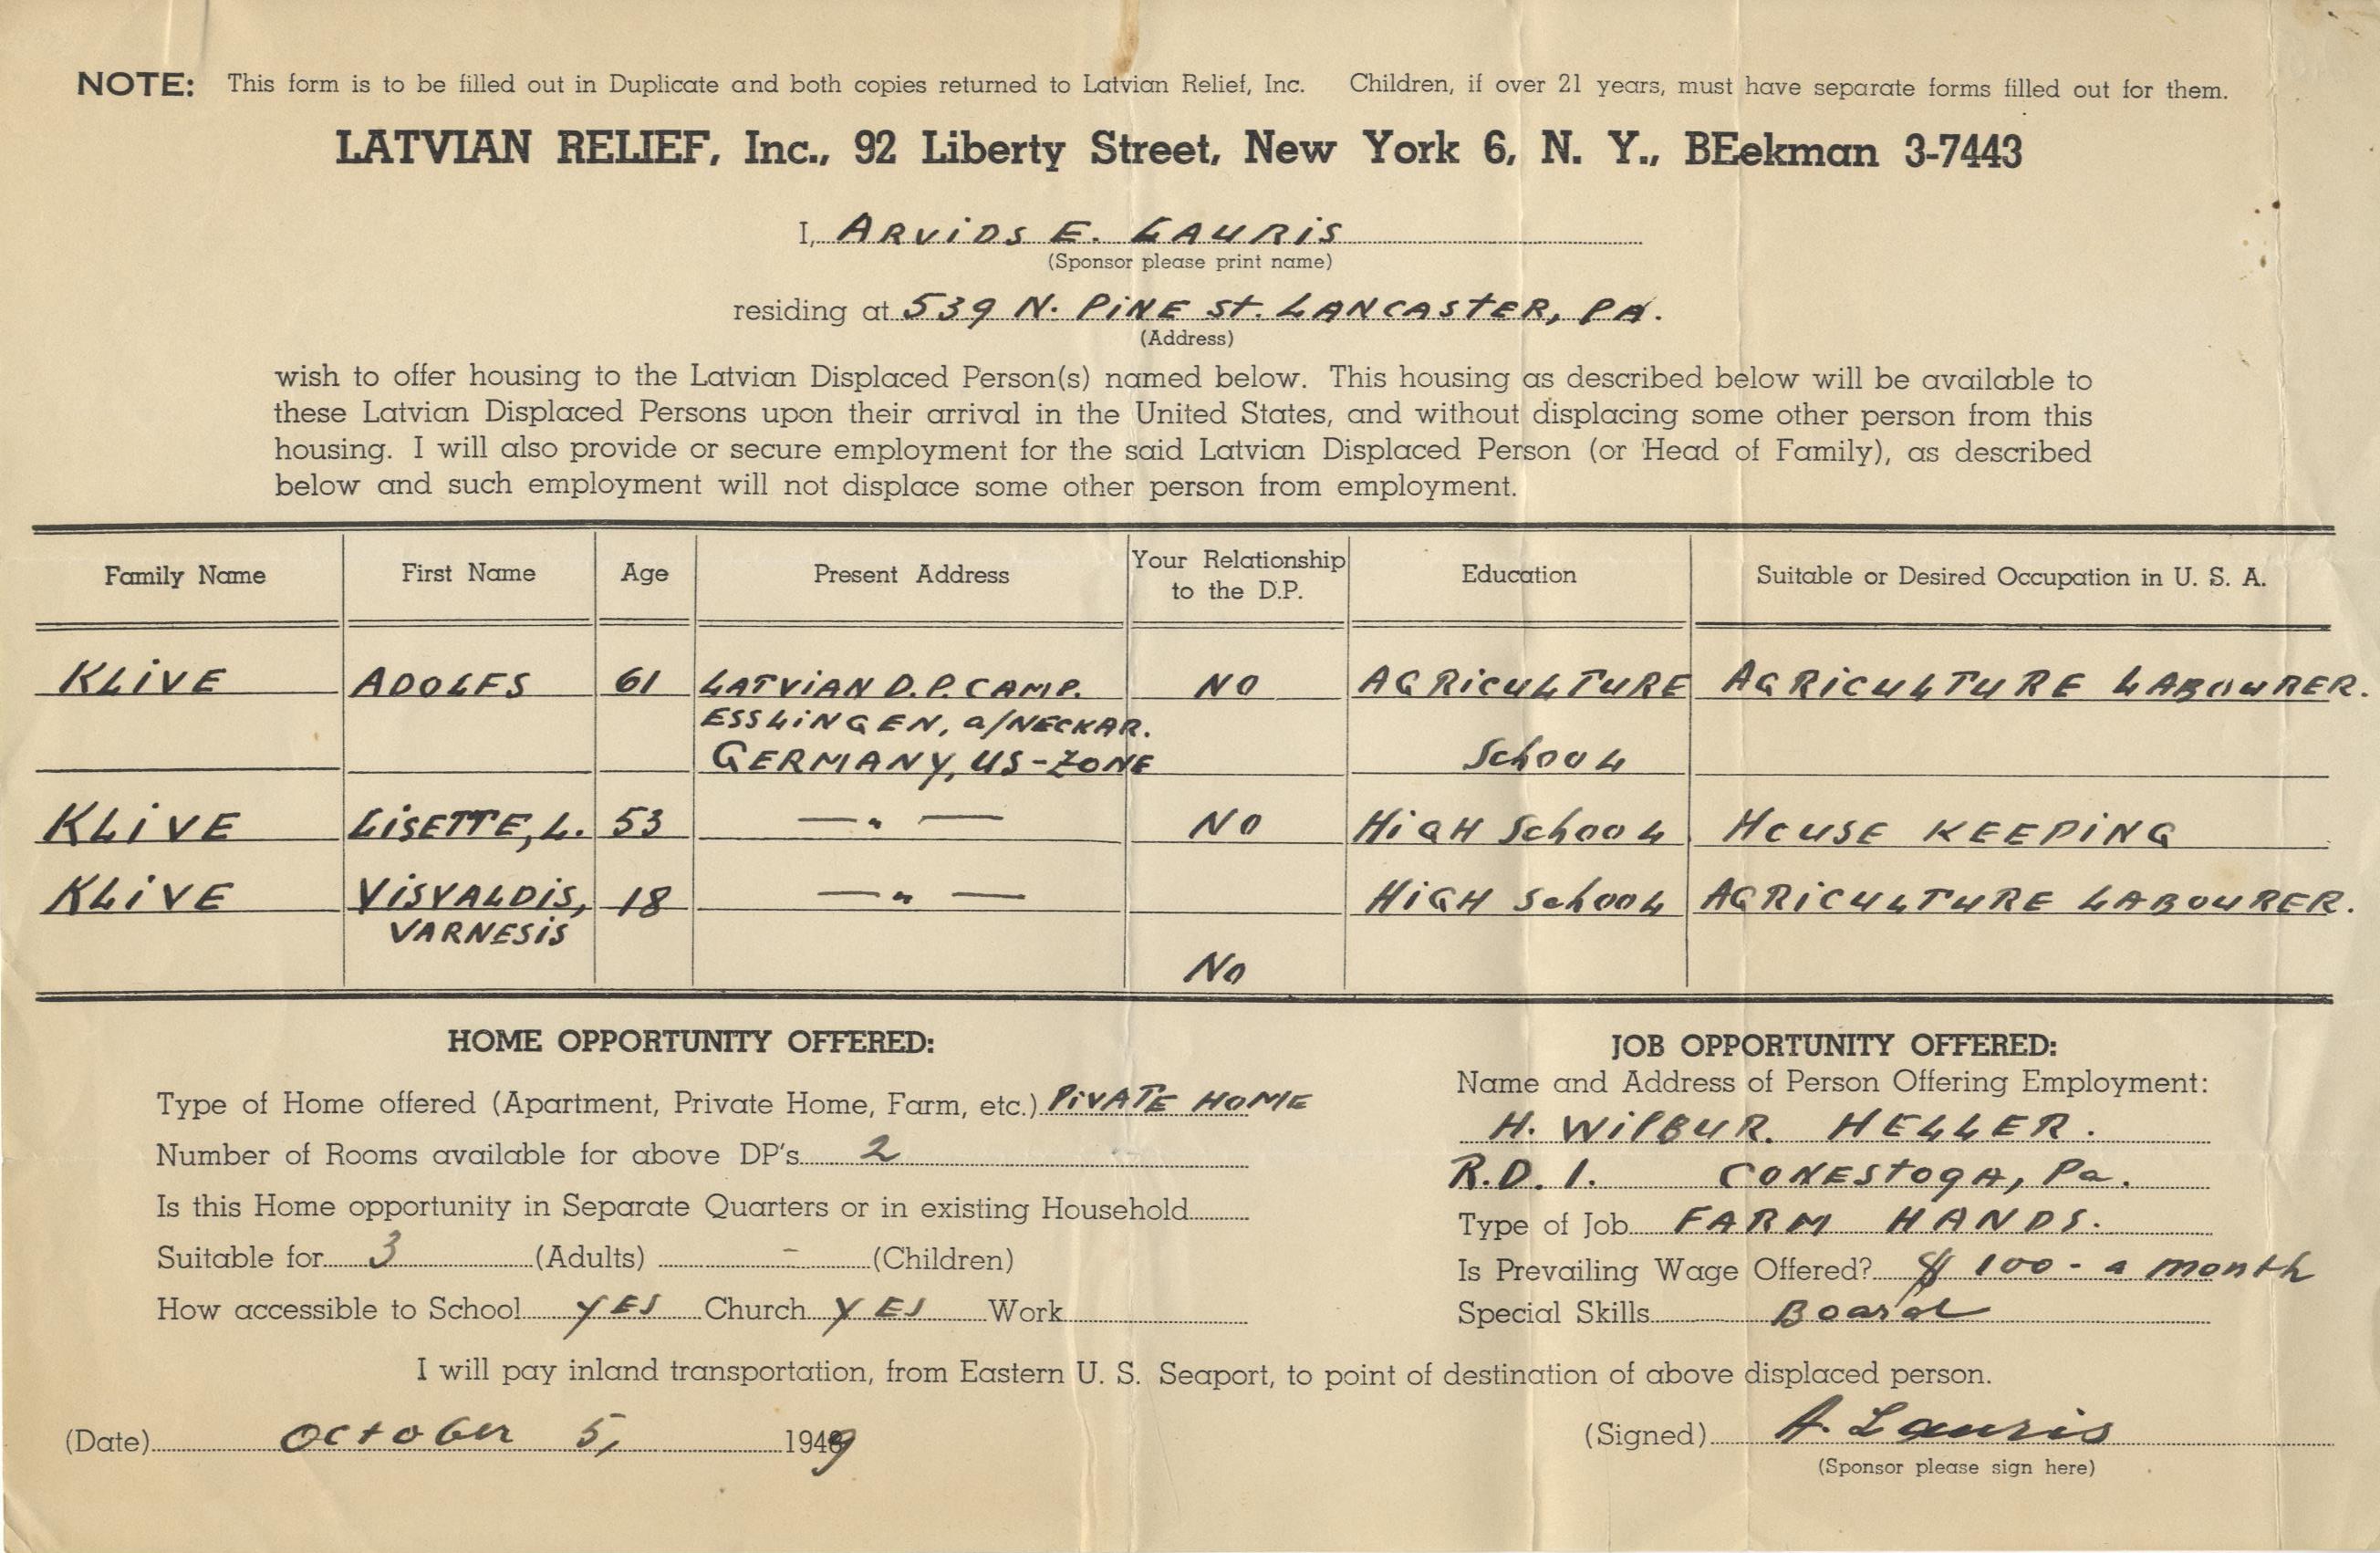 NOTE: This form is to be filled out in Duplicate and both copies returned to Latvian Relief, Inc. Children, if over 21 years, must have separate forms filled out for them.
LATVIAN RELIEF, Inc., 92 Liberty Street, New York 6, N. Y., BEekman 3-7443
I, ARViDS E. LAURiS
(Sponsor please print name)
residing at 539 N. PiNE St. LANCASTER, PA.
(Address)
wish to offer housing to the Latvian Displaced Person(s) named below. This housing as described below will be available to
these Latvian Displaced Persons upon their arrival in the United States, and without displacing some other person from this
housing. I will also provide or secure employment for the said Latvian Displaced Person (or Head of Family), as described
below and such employment will not displace some other person from employment.
Family Name First Name Age Present Address Your Relationship to the D.P. Education Suitable or Desired Occupation in U. S. A.
KLiVE ADOLFS 61 LATViAN D.P. CAMP. NO AGRiCULTURE AGRiCULTURE LABOURER.
ESSLiNGEN, a/NECKAR.
GERMANY, US-ZONE School
KLiVE LiSETTE, L. 53 — " — NO HiGH School HOUSE KEEPiNG
KLiVE ViSVALDiS, 18 — " — HiGH School AGRiCULTURE LABOURER.
VARNESiS
No
HOME OPPORTUNITY OFFERED:
Type of Home offered (Apartment, Private Home, Farm, etc.) PiVATE HOME
Number of Rooms available for above DP's 2
Is this Home opportunity in Separate Quarters or in existing Household
Suitable for 3 (Adults) - (Children)
How accessible to School YES Church YES Work
JOB OPPORTUNITY OFFERED:
Name and Address of Person Offering Employment:
H. WiLBUR. HELLER.
R.D. 1. CONESTOGA, Pa.
Type of Job FARM HANDS.
Is Prevailing Wage Offered? $ 100 - a month
Special Skills Board
I will pay inland transportation, from Eastern U. S. Seaport, to point of destination of above displaced person.
(Date) October 5, 1949
(Signed) A. Lauris
(Sponsor please sign here)